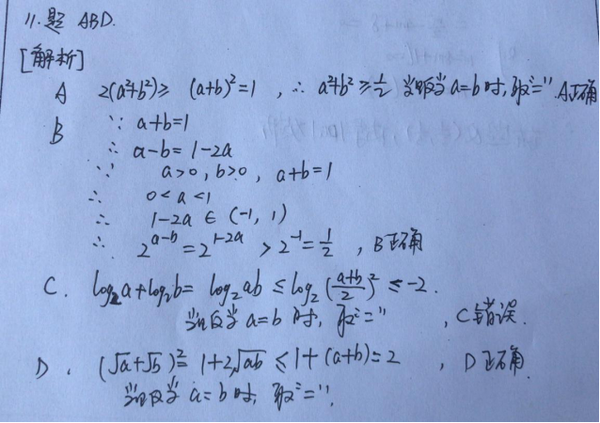 11.题 ABD.
[解析]
A 2(a²+b²)≥ (a+b)²=1 , ∴ a²+b²≥1/2 当且仅当a=b时,取"=" A正确
B ∵ a+b=1
∴ a-b=1-2a
∵ a>0, b>0, a+b=1
∴ 0<a<1
∴ 1-2a ∈ (-1, 1)
∴ 2^(a-b) = 2^(1-2a) > 2^(-1) = 1/2 , B正确
C. log₂a+log₂b= log₂ab ≤ log₂((a+b)/2)² ≤ -2.
当且仅当 a=b 时, 取"=" , C错误.
D. (√a+√b)² = 1+2√ab ≤ 1+(a+b)=2 , D正确
当且仅当 a=b 时, 取"=".